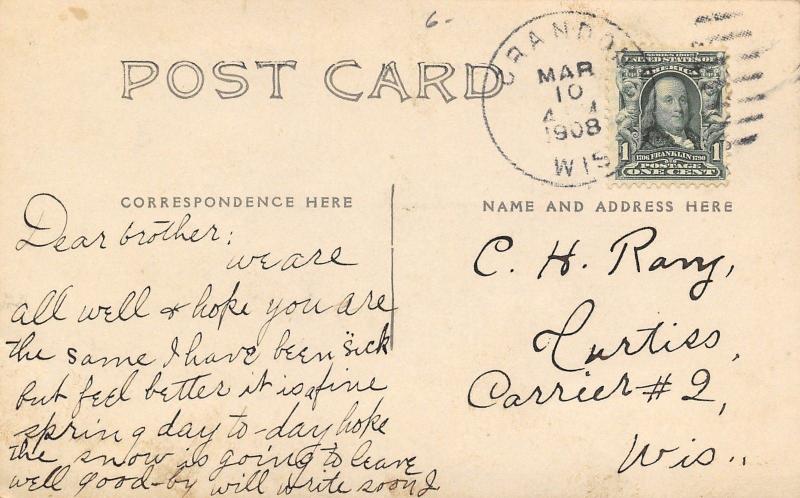 6-
POST CARD
CRANDON
MAR
10
1908
WIS
SERIES 1902
UNITED STATES OF
AMERICA
1 1706 FRANKLIN 1790 1
POSTAGE
ONE CENT
CORRESPONDENCE HERE
Dear brother;
we are
all well & hope you are
the same I have been "sick
but feel better it is a fine
spring day to-day hope
the snow is going to leave
well good-by will write soon
NAME AND ADDRESS HERE
C. H.
Curtiss,
Carrier #2,
Wis.,